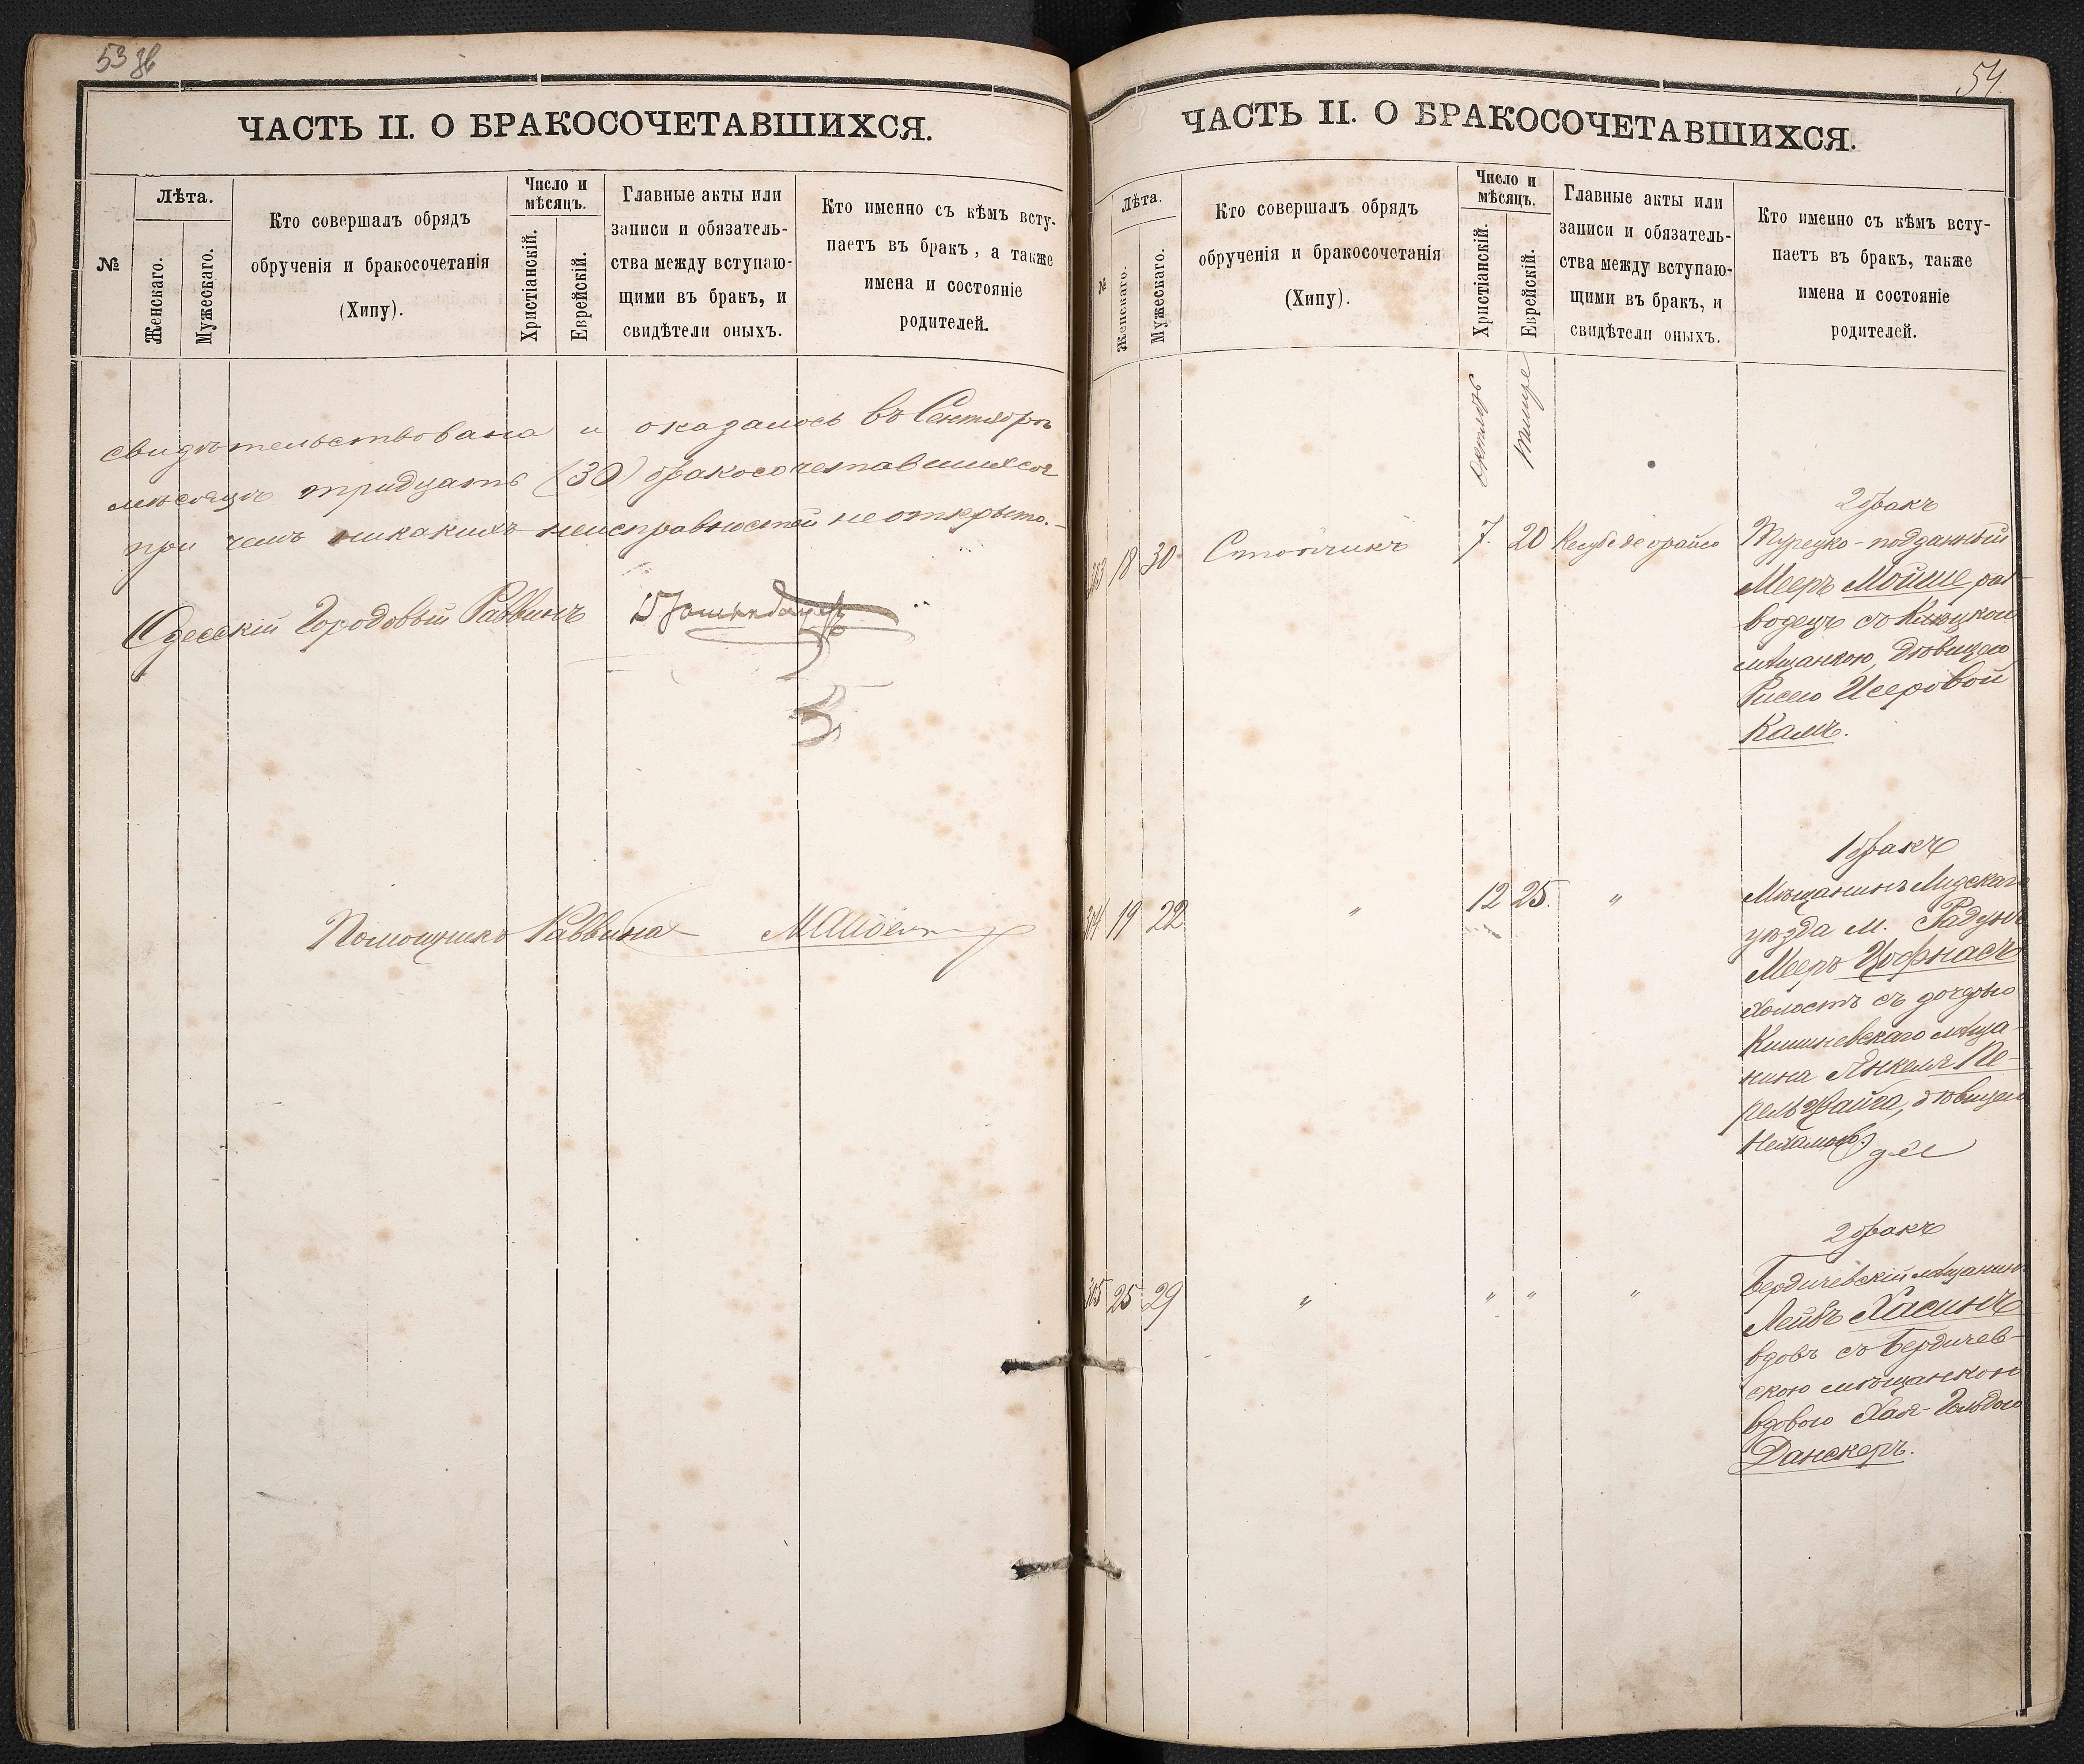 53 об
ЧАСТЬ II. О БРАКОСОЧЕТАВШИХСЯ.
№
Лѣта.
Женскаго.
Мужескаго.
Кто совершалъ обрядъ
обрученія и бракосочетанія
(Хипу).
Число и
мѣсяцъ.
Христіанскій.
Еврейскій.
Главные акты или
записи и обязатель-
ства между вступаю-
щими въ бракъ, и
свидѣтели оныхъ.
Кто именно съ кѣмъ всту-
паетъ въ бракъ, а также
имена и состояніе
родителей.
свидѣтельствована и оказалось въ Сентябрѣ
мѣсяцѣ тридцать (30) бракосочетавшихся
при чемъ никакихъ неисправностей не открыто.
Одесскій Городовый Раввинъ
Помощникъ Раввина
54.
ЧАСТЬ II. О БРАКОСОЧЕТАВШИХСЯ.
№
Лѣта.
Женскаго.
Мужескаго.
Кто совершалъ обрядъ
обрученія и бракосочетанія
(Хипу).
Число и
мѣсяцъ.
Христіанскій.
Еврейскій.
Главные акты или
записи и обязатель-
ства между вступаю-
щими въ бракъ, и
свидѣтели оныхъ.
Кто именно съ кѣмъ всту-
паетъ въ бракъ, также
имена и состояніе
родителей.
Октябрь
Тишре
303 18 30 7. 20
2 бракъ
Турецко-подданный
Мееръ Мойше раз-
водецъ съ
мѣщанкою, дѣвицею
Рисею Исеровой
Камъ.
304 19 22 " 12 25. "
1 бракъ
Мѣщанинъ Лидскаго
уѣзда м. Радунь
Мееръ Цофнасъ
холостъ съ дочерью
Кишиневскаго мѣща-
нина Янкеля Пе-
рельцвайга, дѣвицею
305 25 29 " " " "
2 бракъ
Бердичевскій мѣщанинъ
Лейбъ Хасинъ
вдовъ съ Бердичев-
скою мѣщанкою
вдовою Хая-Гольдою
Данскеръ.